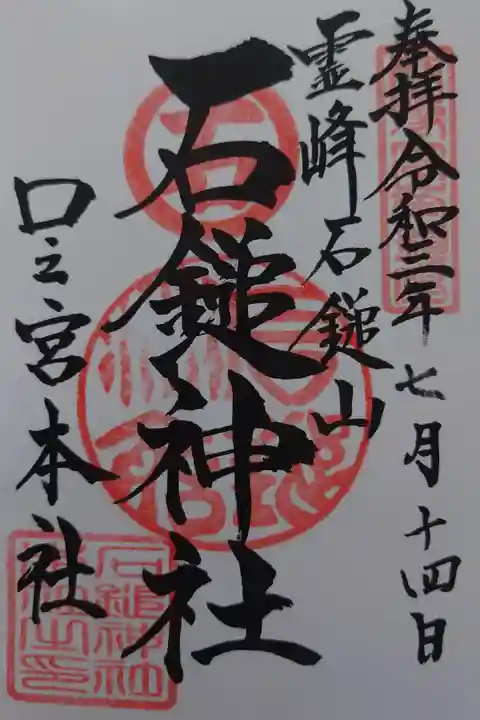 奉拝令和三年七月十四日
霊峰石鎚山
石鎚神社
口之宮本社
石
石鎚神社